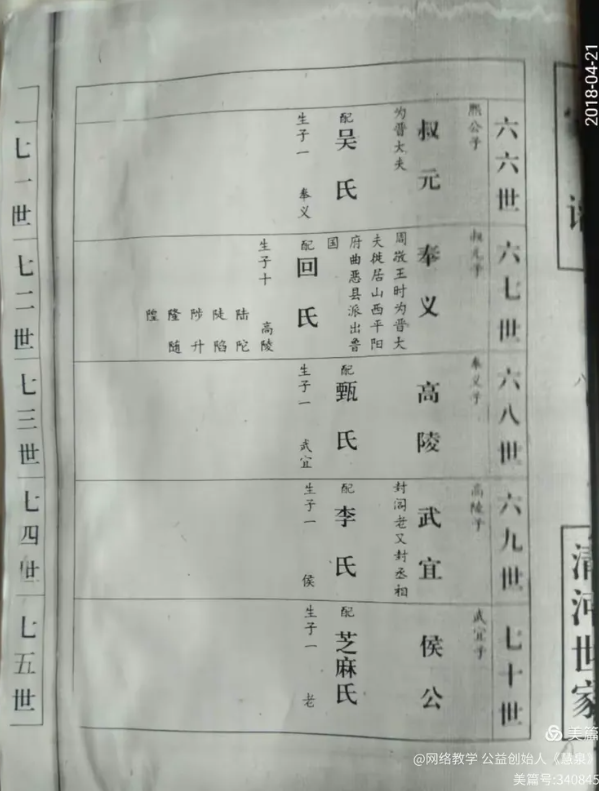 2018-04-21
清河世家
六六世
熙公子
叔元
为晋大夫
配
吴氏
生子一 奉义
六七世
叔元子
奉义
周敬王时为晋大
夫徙居山西平阳
府曲恶县派出鲁
国
配
回氏
生子十 高陵
陆 陀
陡 陷
陟 升
隆 随
隍
六八世
奉义子
高陵
配
甄氏
生子一 武宜
六九世
高陵子
武宜
封阁老又封丞相
配
李氏
生子一 侯
七十世
武宜子
侯公
配
芝麻氏
生子一 老
七一世
七二世
七三世
七四世
七五世
美篇
@网络教学 公益创始人《慧泉》
美篇号:340845